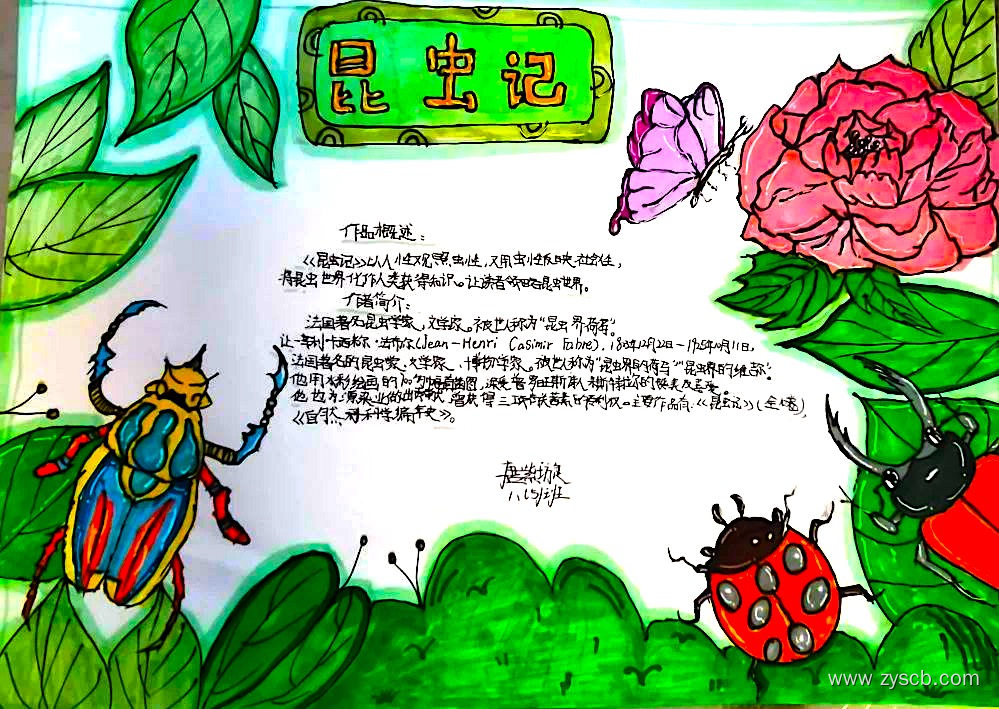 昆虫记
作品概述：
《昆虫记》以人性观照虫性,又用虫性反映社会性,
将昆虫世界化作人类获得知识。让读者领略昆虫世界。
作者简介：
法国著名昆虫学家,文学家。被世人称为“昆虫界荷马”。
让－亨利·卡西米尔·法布尔(Jean-Henri Casimir Fabre), 1823年12月22日－1915年10月11日,
法国著名的昆虫学家、文学家、博物学家。被世人称为“昆虫界的荷马”“昆虫界的维吉尔”。
他用水彩绘画的700多幅真菌图,深受普罗旺斯诗人
他也为漂染业做出贡献,曾获得三项有关茜素的专利权。主要作品有:《昆虫记》(全十卷),
《自然科学编年史》。
八(5)班
www.zyscb.com